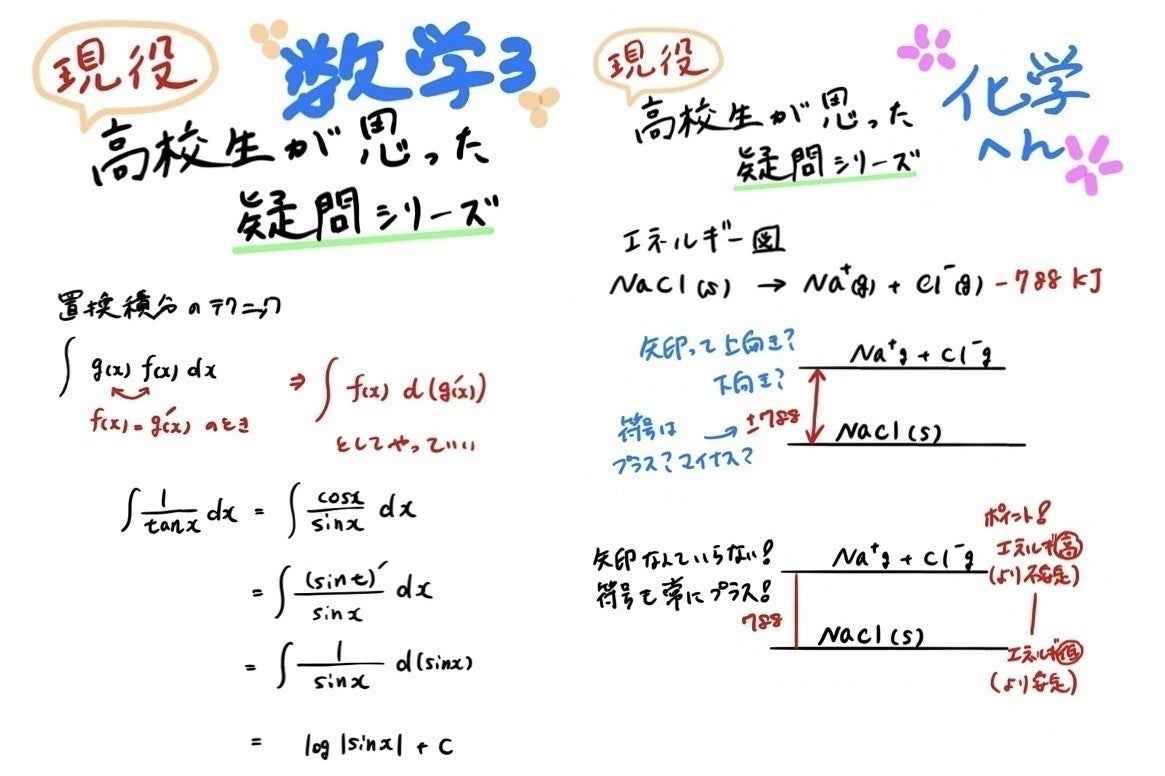 現役
数学3
高校生が思った
疑問シリーズ
置換積分のテクニック
∫ g(x) f(x) dx
f(x) = g'(x) のとき
⇒ ∫ f(x) d(g'(x))
としてやっていい
∫ 1/tanx dx = ∫ cosx/sinx dx
= ∫ (sint)'/sinx dx
= ∫ 1/sinx d(sinx)
= log |sinx| + C
現役
化学
へん
高校生が思った
疑問シリーズ
エネルギー図
NaCl(s) → Na⁺(g) + Cl⁻(g) -788 kJ
矢印って上向き?
下向き?
Na⁺g + Cl⁻g
符号は → ±788
プラス?マイナス?
NaCl(s)
ポイント!
矢印なんていらない!
符号も常にプラス!
Na⁺g + Cl⁻g
エネルギ高
(より不安定)
788
NaCl(s)
エネルギ低
(より安定)